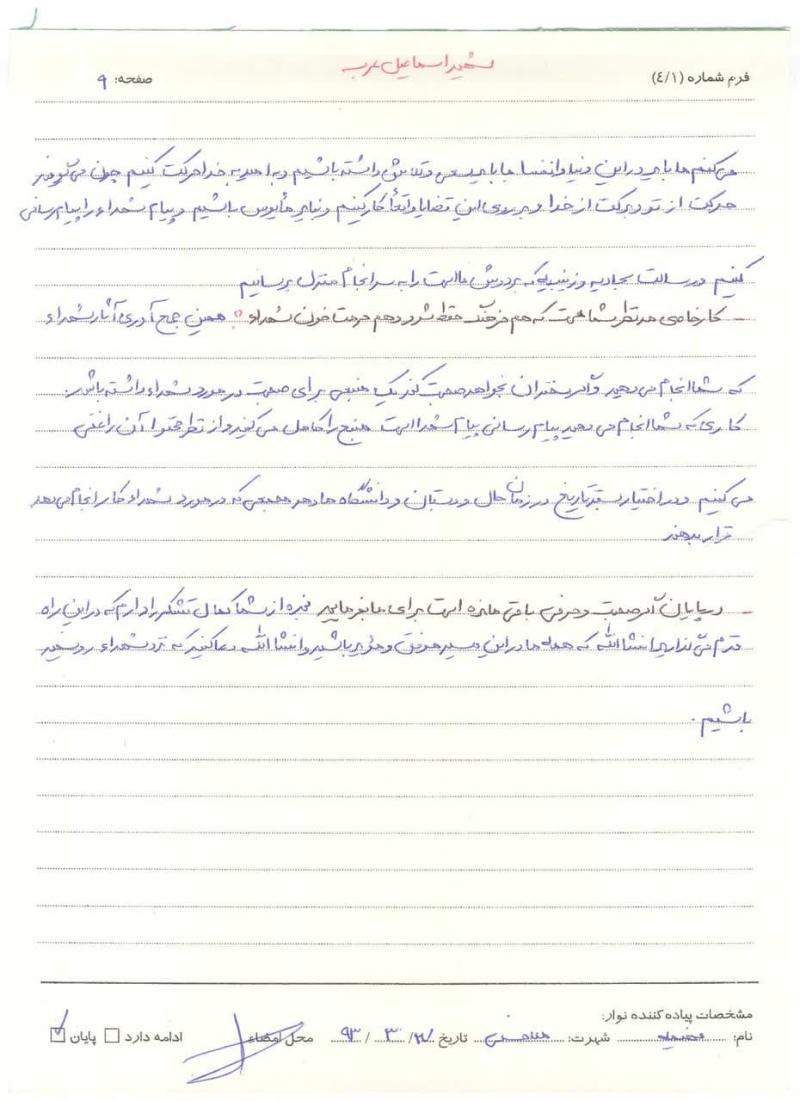 شهید اسماعیل عرب
فرم شماره (٤/١)
صفحه: ۹
می‌کنیم ما باید در این دنیا وانفسا ما باید سعی و تلاش داشته باشیم و به امید به خدا حرکت کنیم چون می‌گویند
حرکت از تو برکت از خدا و بر روی این قضایا واقعاً کار کنیم و نباید مأیوس باشیم و پیام شهداء را پیام رسانی
کنیم و رسالت سجادیه و زینبیه که بر دوش ماست را به سرانجام منزل برسانیم
- کار خاصی مد نظر شما هست که هم فرهنگ حفظ شود و هم حرمت خون شهداء : همین جمع آوری آثار شهداء
که شما انجام می دهید و اگر سخنران بخواهد صحبت کند یک منبعی برای صحبت در مورد شهداء داشته باشد.
کاری که شما انجام می دهید پیام رسانی پیام شهدا است منبع را کامل می کنید و از نظر محتوا آن را غنی
می کنیم و در اختیار تاریخ در زمان حال و دبستان و دانشگاه ها و هر مجمعی که در مورد شهداء کار انجام می دهد
قرار بدهند
- در پایان اگر صحبت و حرفی باقی مانده است برای ما بفرمایید بنده از شما کمال تشکر را دارم که در این راه
قدم می گذارید انشا الله که همه ما در این مسیر موفق و مؤید باشید و انشا الله دعا کنید که نزد شهداء رو سفید
باشیم .
مشخصات پیاده کننده نوار:
نام: شهرت: تاریخ / ۳ / ۹۳ محل امضاء ادامه دارد پایان